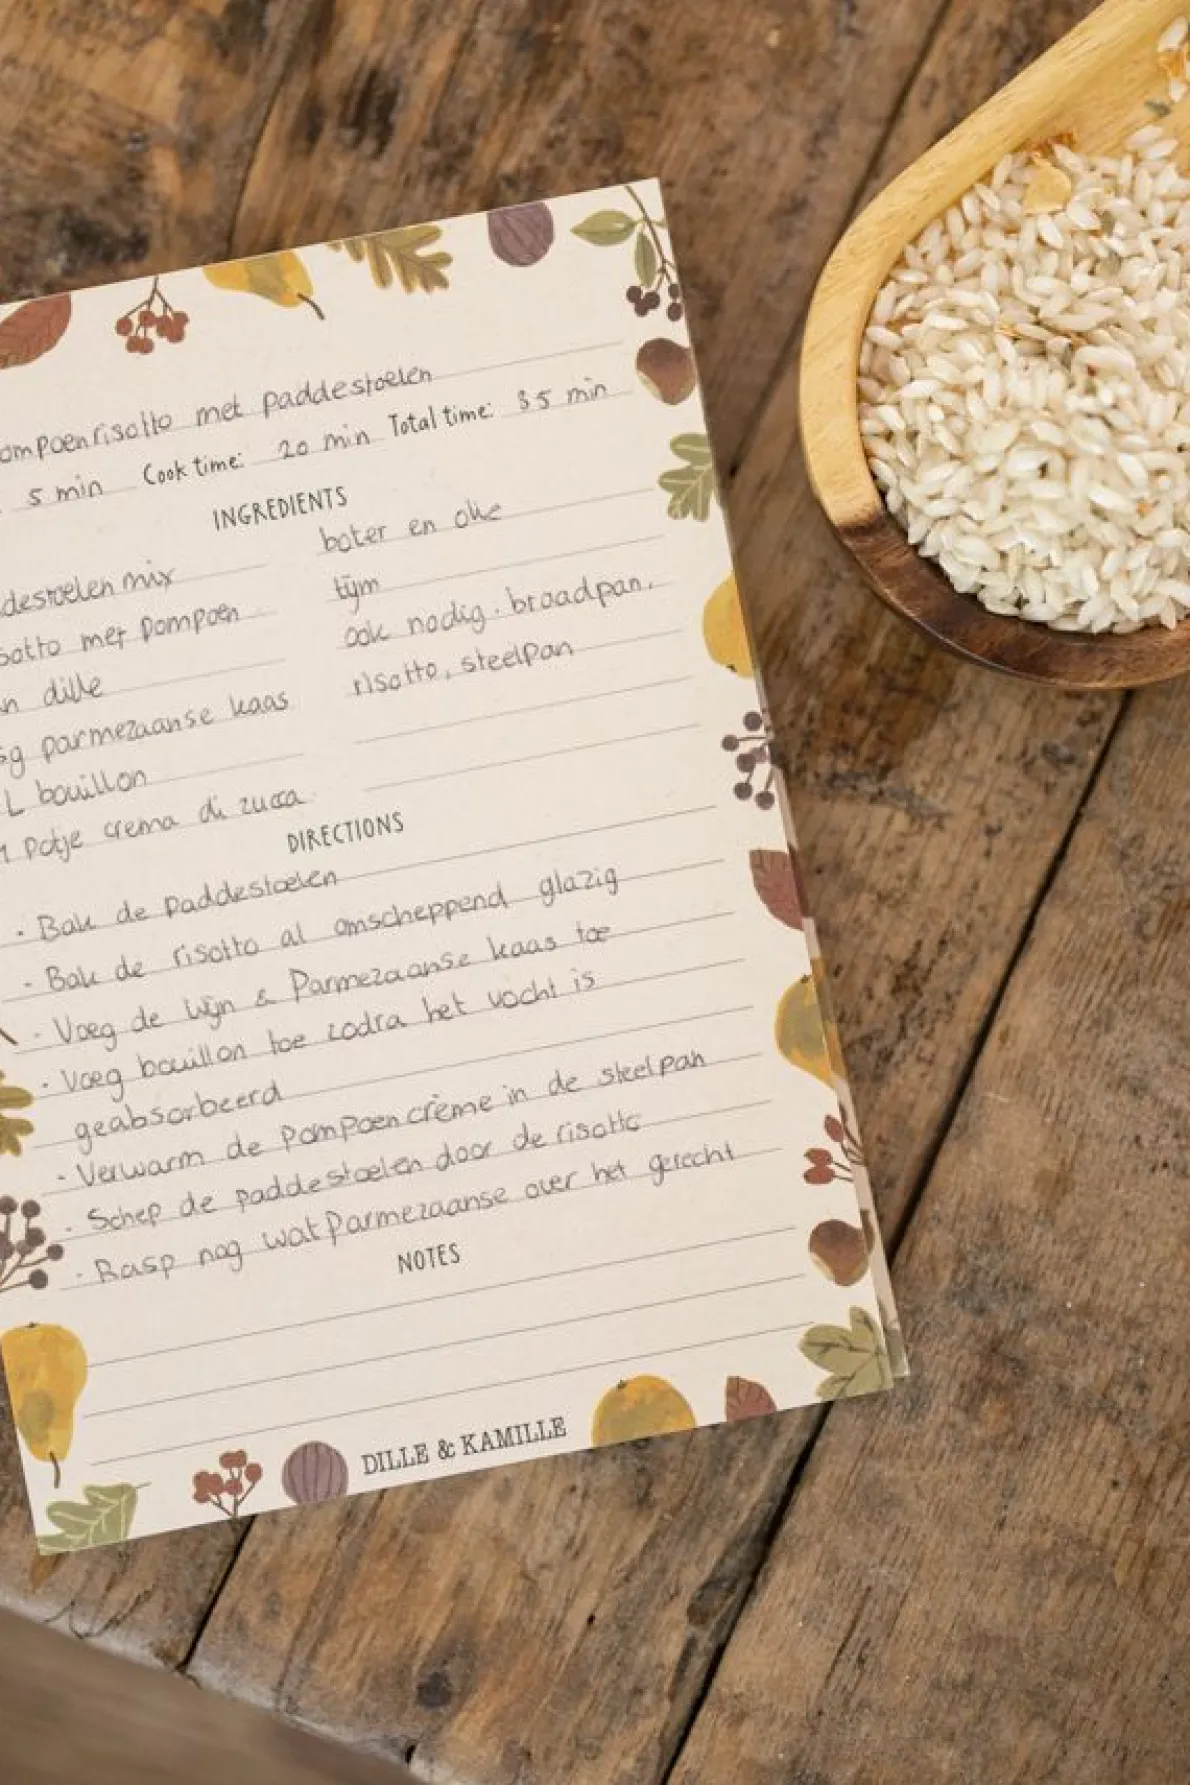 ompoenrisotto met paddestoelen
5 min Cook time: 20 min Total time: 35 min
INGREDIENTS
destoelen mix
sotto met pompoen
n dille
g parmezaanse kaas
L bouillon
1 potje crema di zucca
boter en olie
tijm
ook nodig. braadpan,
risotto, steelpan
DIRECTIONS
· Bak de paddestoelen
· Bak de risotto al omscheppend glazig
· Voeg de wijn & Parmezaanse kaas toe
· Voeg bouillon toe zodra het vocht is
geabsorbeerd
· Verwarm de pompoencrème in de steelpan
· Schep de paddestoelen door de risotto
· Rasp nog wat Parmezaanse over het gerecht
NOTES
DILLE & KAMILLE